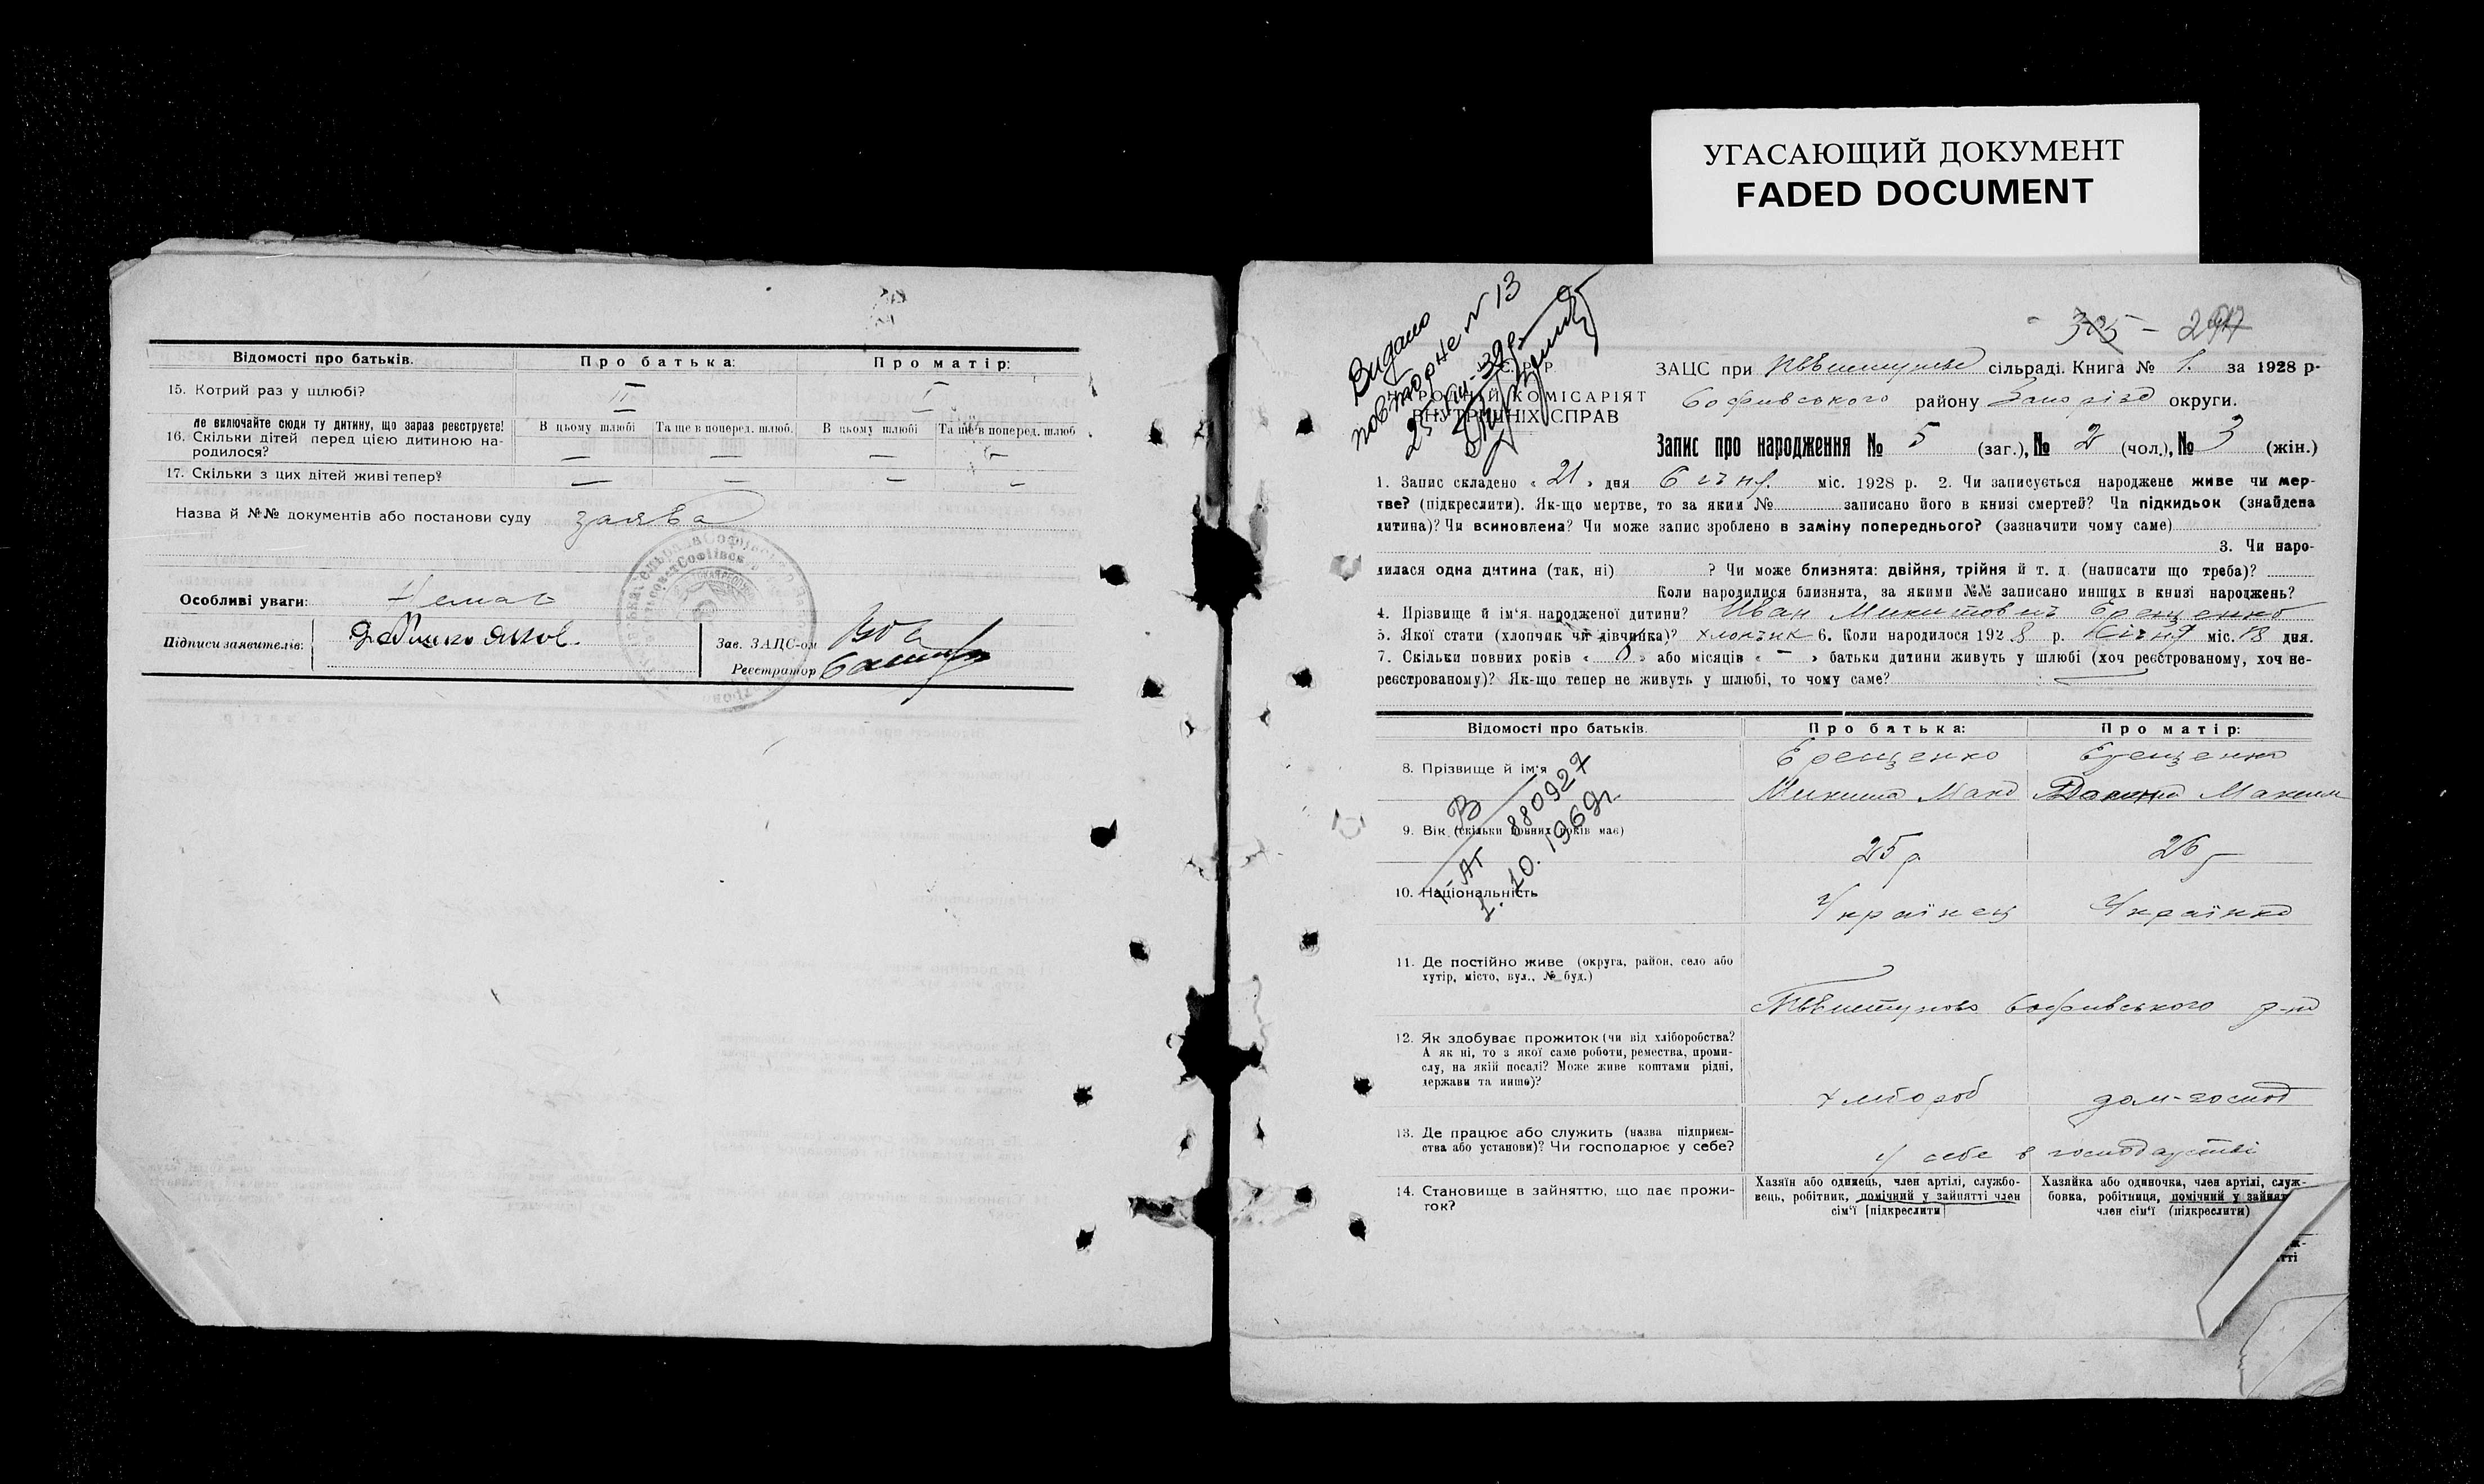 УГАСАЮЩИЙ ДОКУМЕНТ
FADED DOCUMENT
Відомості про батьків. Про батька: Про матір:
15. Котрий раз у шлюбі? II I
Не включайте сюди ту дитину, що зараз реєструєте!
16. Скільки дітей перед цією дитиною на-
родилося?
В цьому шлюбі Та ще в поперед. шлюб. В цьому шлюбі Та ще в поперед. шлюб
— — — —
17. Скільки з цих дітей живі тепер? — — — —
Назва й №№ документів або постанови суду заява
Особливі уваги: Немає
Підписи заявителів:
Зав. ЗАЦС-ом
Реєстратор
305 - 297
Видано
повторне № 13
С.Р.Р.
НАРОДНІЙ КОМІСАРІЯТ
ВНУТРІШНІХ СПРАВ
ЗАЦС при сільраді. Книга № 1. за 1928 р.
Софиївського району Запорізь округи.
Запис про народження № 5 (заг.), № 2 (чол.), № 3 (жін.)
1. Запис складено « 21 » дня Січня міс. 1928 р. 2. Чи записується народжене живе чи мер-
тве? (підкреслити). Як-що мертве, то за яким № записано його в книзі смертей? Чи підкидьок (знайдена
дитина)? Чи всиновлена? Чи може запис зроблено в заміну попереднього? (зазначити чому саме)
3. Чи наро-
дилася одна дитина (так, ні) ? Чи може близнята: двійня, трійня й т. д. (написати що треба)?
Коли народилися близнята, за якими №№ записано инших в книзі народжень?
4. Прізвище й ім'я народженої дитини? Иван Микитовичь Ерещенко
5. Якої стати (хлопчик чи дівчинка)? хлопчик 6. Коли народилося 1928 р. Січня міс. 18 дня.
7. Скільки повних років « 0 » або місяців « - » батьки дитини живуть у шлюбі (хоч реєстрованому, хоч не-
реєстрованому)? Як-що тепер не живуть у шлюбі, то чому саме?
Відомості про батьків. Про батька: Про матір:
8. Прізвище й ім'я Ерещенко Ерещенко
Микита Максим
9. Вік (скільки повних років має) 25 р 26 р
880927
1.10.1969г.
10. Національність Українець Українка
11. Де постійно живе (округа, район, село або
хутір, місто, вул., № буд.)
Софивського р-на
12. Як здобуває прожиток (чи від хліборобства?
А як ні, то з якої саме роботи, ремества, проми-
слу, на якій посаді? Може живе коштами рідні,
держави та инше)?
хлібороб дом-господ
13. Де працює або служить (назва підприєм-
ства або установи)? Чи господарює у себе?
У себе в господарстві
14. Становище в зайняттю, що дає прожи-
ток?
Хазяїн або одинець, член артілі, службо-
вець, робітник, помічний у зайнятті член
сім'ї [підкреслити]
Хазяйка або одиночка, член артілі, служ-
бовка, робітниця, помічний у зайнят
член сім'ї (підкреслити)